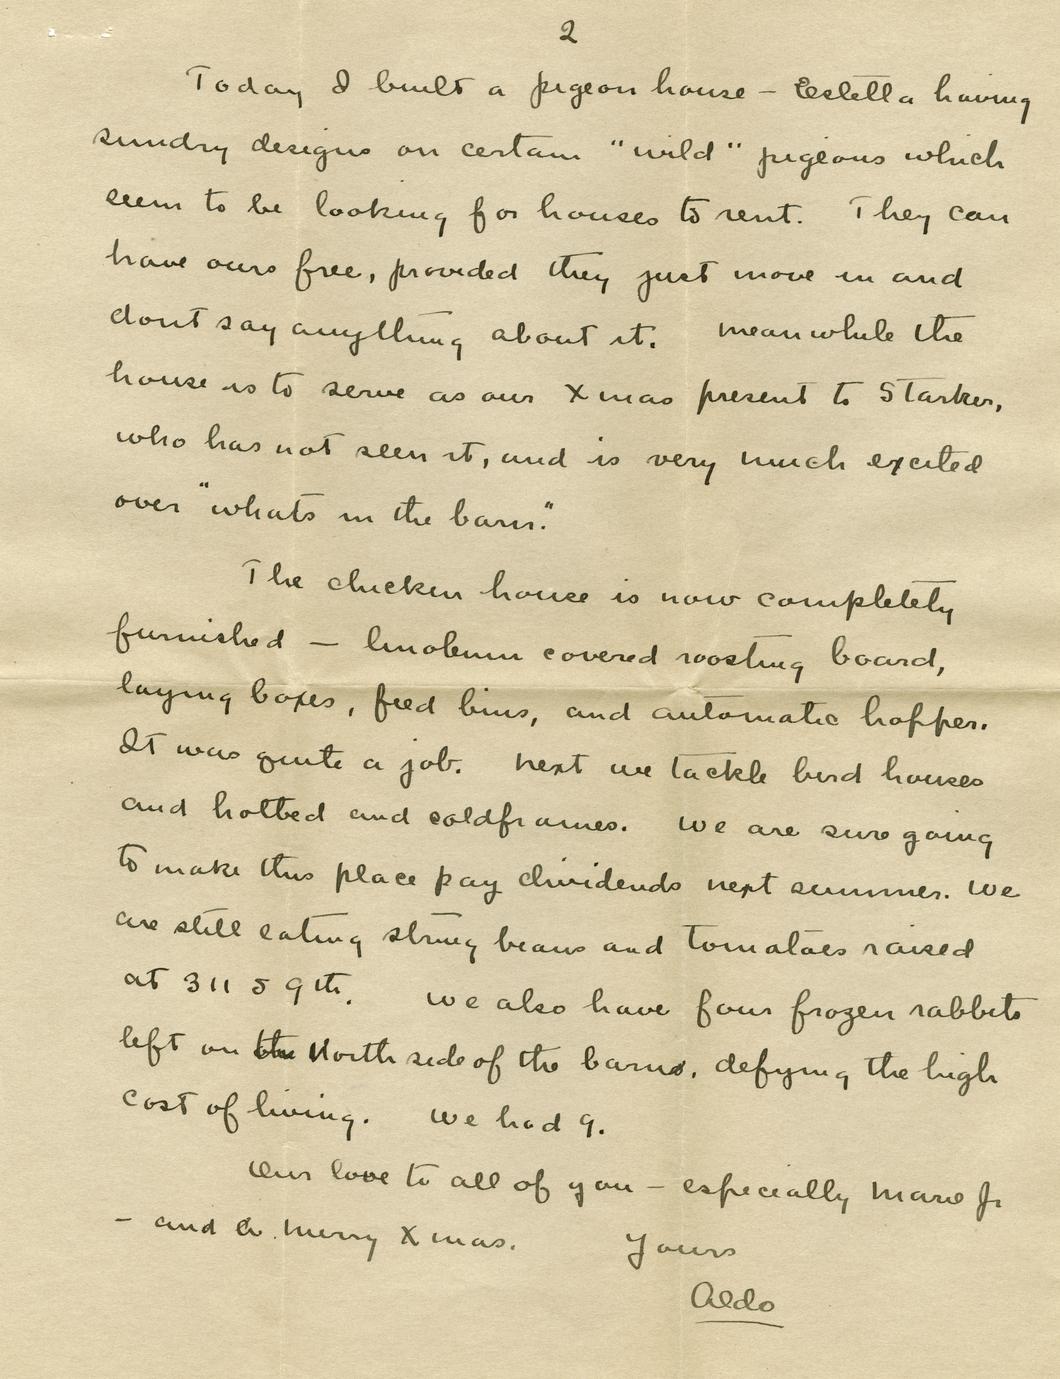 2
Today I built a pigeon house – Estella having
sundry designs on certain "wild" pigeons which
seem to be looking for houses to rent. They can
have ours free, provided they just move in and
dont say anything about it. Meanwhile the
house is to serve as our Xmas present to Starker,
who has not seen it, and is very much excited
over "whats in the barn."
The chicken house is now completely
furnished – linoleum covered roosting board,
laying boxes, feed bins, and automatic hopper.
It was quite a job. Next we tackle bird houses
and hotbed and coldframes. We are sure going
to make this place pay dividends next summer. We
are still eating string beans and tomatoes raised
at 311 S 9th. We also have four frozen rabbits
left on the North side of the barn, defying the high
cost of living. We had 9.
Our love to all of you – especially Marie Jr
– and a Merry Xmas. Yours
Aldo